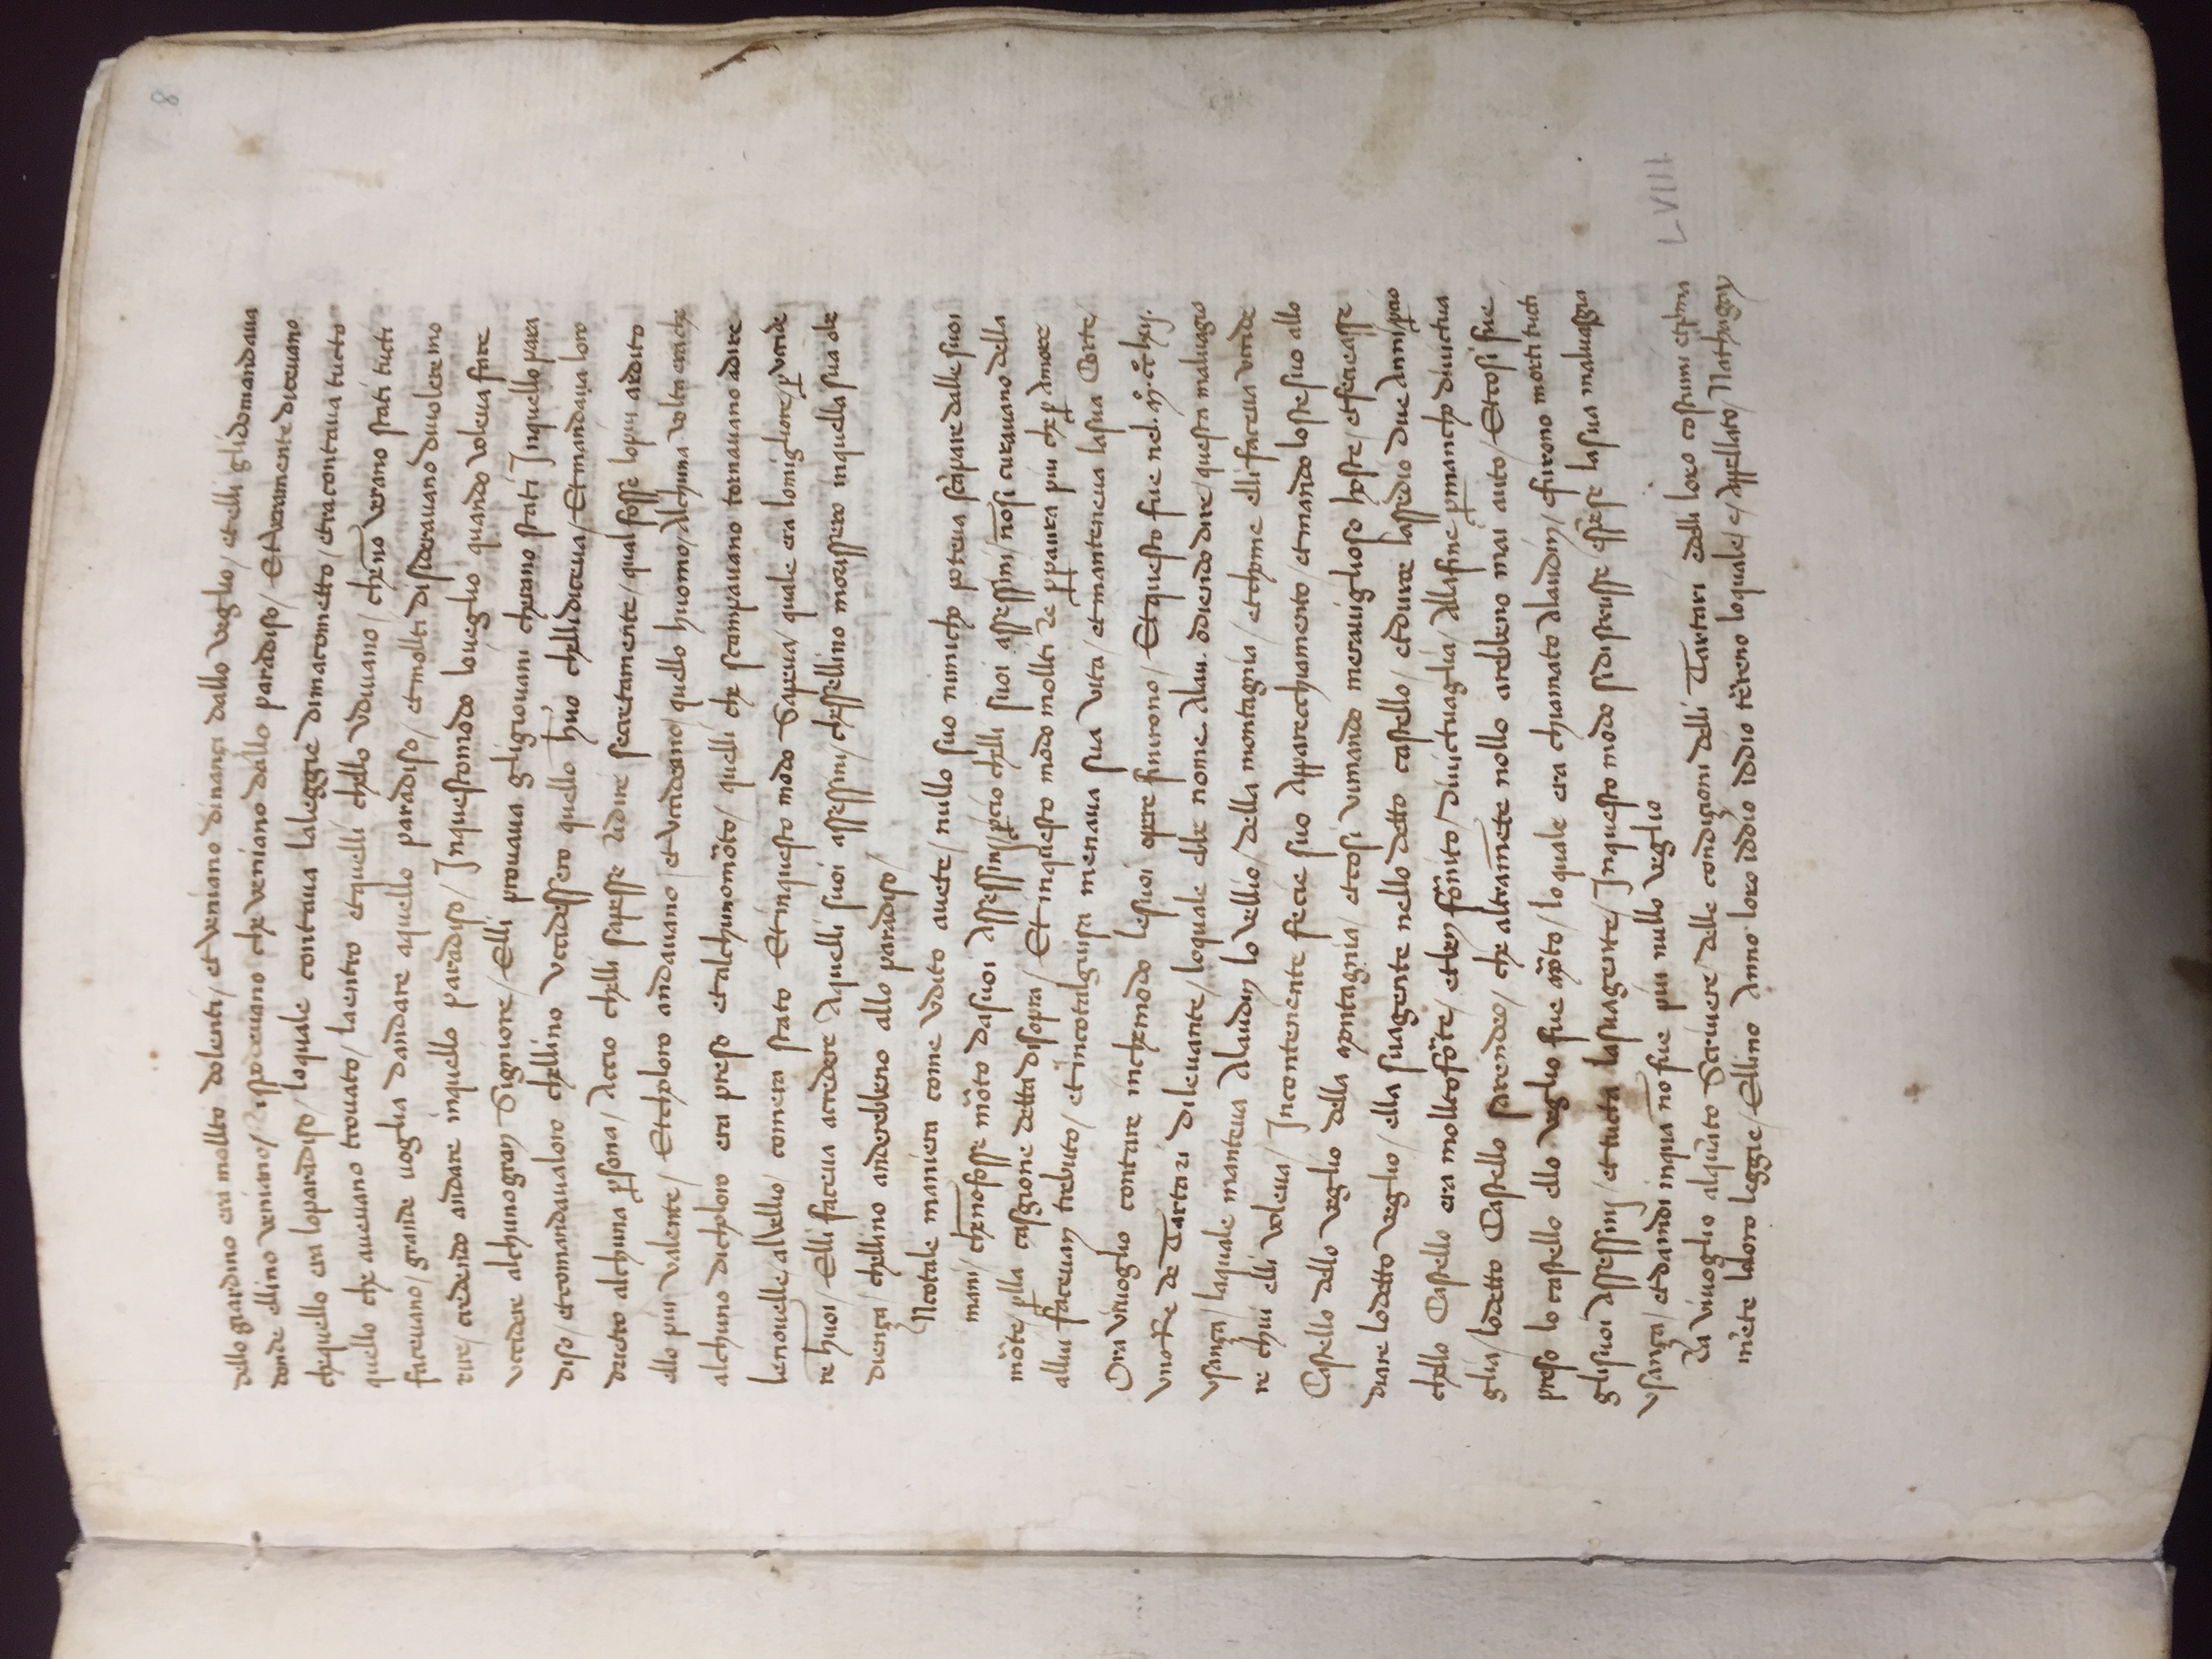 8
dello giardino era mollto dolenti / et veniano dinançi dallo veglio / et elli gli domandaua
donde ellino veniano / rispodeuano che veniano dallo paradiso / Et veramente diceuano
che quello era lo paradiso / lo quale contaua la leggie di macometto / et racontaua tucto
quello che aueuano trouato / la entro et quelli chello vdiuano / che nō verano stati tucti
faceuano / grande uoglia dandare aquello paradiso / et mollti disiderauano di uolere mo
rire / credendo andare inquello paradiso / Inquesto modo lo ueglio quando voleua fare
vccidere alchuno gran Signiore / Elli prouaua gli giouani cherano stati Inquello para
diso / et comandaua loro chellino vccidessero quello h̄uo chelli diceua / Et mandaua loro
drieto alchuna p̄sona / Accio chelli sapesse ridire secretamente / qual fosse lo piu ardito
ello piu valente / Et choloro andauano / et vccideano / quello huomo / Alchuna volta era che
alchuno di choloro era preso et alchuno mōto / quelli che scampauano tornauano a dire
le nouelle / al vellio / comera stato Et inquesto modo Sapeua / quale era lo migliore / p̄ vccide
re h̄uoi / Elli faceua a credere Aquelli suoi assessini / chessellino morissero inquella sua obe
diença / chellino anderebbeno allo paradiso /
Ncotale maniera come vdito auete / nullo suo nimicho poteua scāpare dalle suoi
mani / che nō fosse mōto da suoi Assessini / p̄cio chelli suoi assessini / nō si curauano della
mōte / p̄lla casgione detta disopra / Et inquesto modo mollti Re p̄ paura piu che p̄ Amore
allui faceuan trebuto / et in cotal guisa menaua sua vita / et manteneua la sua Corte /
Ora vi uoglio contare in che modo le suoi opere finirono / Et questo fue nel. M̊. cc̊ lxij.
vno Re de Tartari di leuante / lo quale ebbe nome Alau. odiendo dire / questa maluagio
vsança / la quale manteua Alaudin lo Vellio / della montagnia / et chome elli faceua vccide
re chui elli voleua / Incontenente fecie suo Apparecchiamento / et mando loste suo allo
Castello dello veglio della montagnia / et cosi vi mando merauiglioso hoste / et fecie asse
diare lo detto veglio / ella sua gente nello detto castello / et duroe lassedio due Anni / p̄cio
chello Castello era mollto fōte / et ben fōnito / di uictuaglia / Alla fine p̄ mancho di uictua
glia / lo detto Castello sarendeo / che altram̄ete nollo arebbeno mai auto / Et cosi fue
preso lo castello ello veglio fue mōto / lo quale era chiamato Alaudin / e furono morti tucti
gli suoi Assessini / et tucta la sua gente / Inquesto modo si distrusse e spese la sua maluasgia
vsança / et da indi inqua nō fue piu nullo veglio
Ra vi uoglio alquāto Scriuere / delle condiçioni delli Tartari e delli loro costumi et p̄ma
mēte la loro leggie / Ellino Anno loro iddio iddio tēreno lo quale / e / Appellato / Nathagay
LVIII